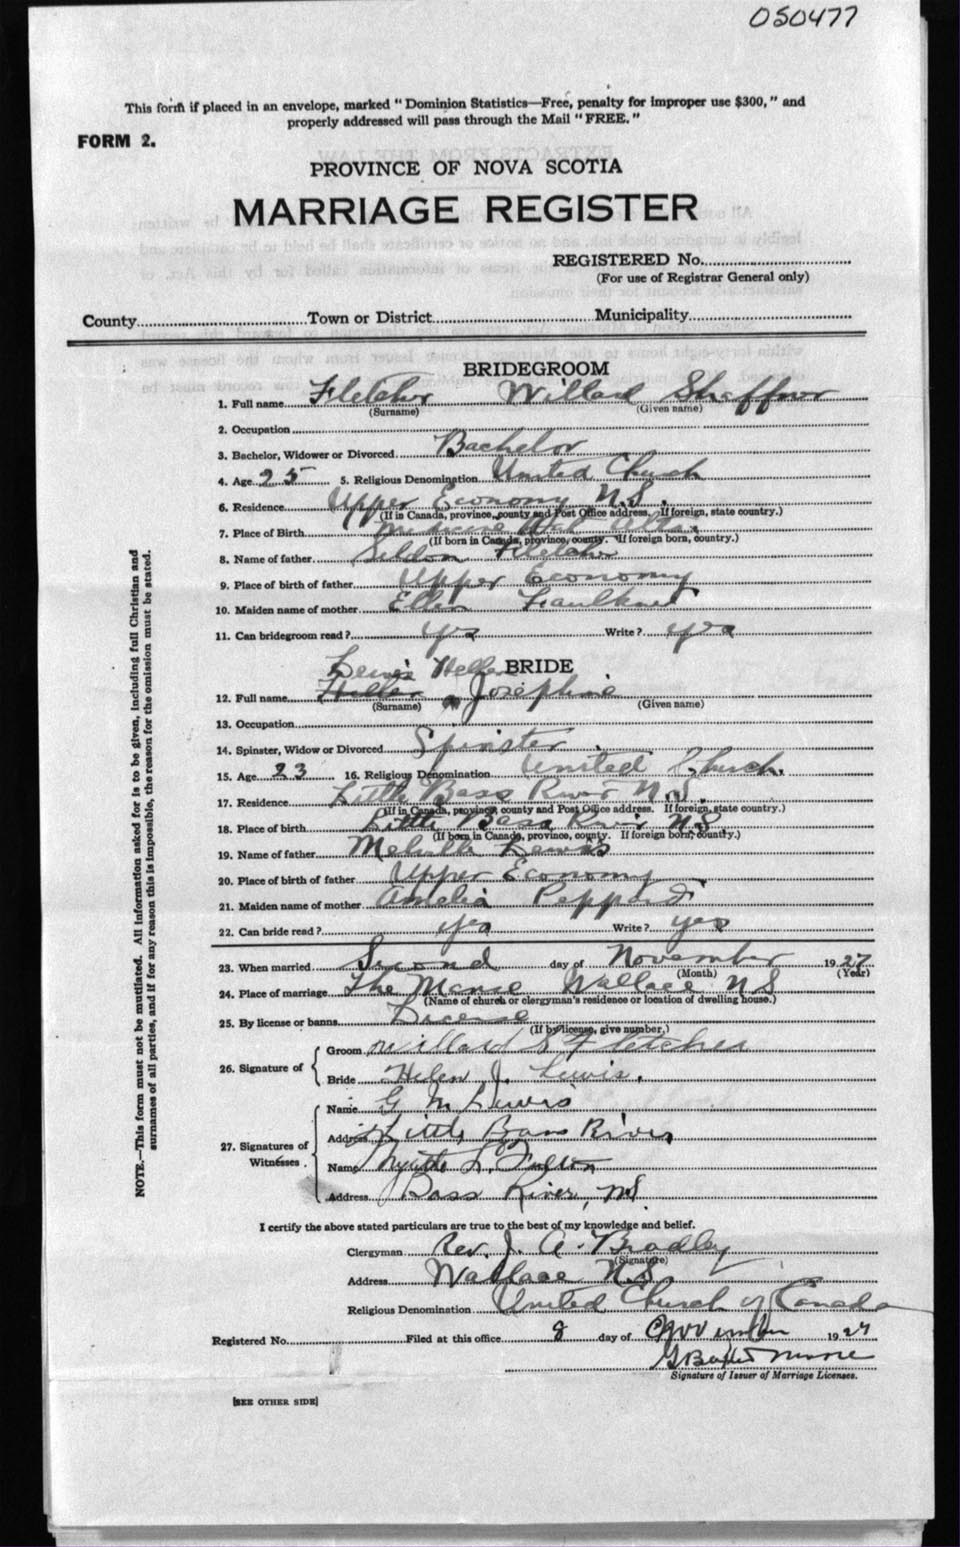 050477
This form if placed in an envelope, marked "Dominion Statistics—Free, penalty for improper use $300," and
properly addressed will pass through the Mail "FREE."
FORM 2.
PROVINCE OF NOVA SCOTIA
MARRIAGE REGISTER
REGISTERED No.
(For use of Registrar General only)
County Town or District Municipality
BRIDEGROOM
1. Full name Fletcher Willard Shaffner
(Surname) (Given name)
2. Occupation
3. Bachelor, Widower or Divorced Bachelor
4. Age 25 5. Religious Denomination United Church
6. Residence Upper Economy N.S.
(If in Canada, province, county and Post Office address. If foreign, state country.)
7. Place of Birth Medicine Hat Alta.
(If born in Canada, province, county. If foreign born, country.)
8. Name of father Seldon Fletcher
9. Place of birth of father Upper Economy
10. Maiden name of mother Ellen Faulkner
11. Can bridegroom read? yes Write? yes
BRIDE
Lewis Helen
12. Full name Josephine
(Surname) (Given name)
13. Occupation
14. Spinster, Widow or Divorced Spinster
15. Age 23 16. Religious Denomination United Church.
17. Residence Little Bass River N.S.
(If in Canada, province, county and Post Office address. If foreign, state country.)
18. Place of birth Little Bass River N.S.
(If born in Canada, province, county. If foreign born, country.)
19. Name of father Melville Lewis
20. Place of birth of father Upper Economy
21. Maiden name of mother Amelia Peppard
22. Can bride read? yes Write? yes
23. When married Second day of November 1927
(Month) (Year)
24. Place of marriage The Manse Wallace NS
(Name of church or clergyman's residence or location of dwelling house.)
25. By license or banns License
(If by license, give number.)
26. Signature of
Groom Willard S Fletcher
Bride Helen J. Lewis.
27. Signatures of Witnesses.
Name G M Lewis
Address Little Bass River
Name Myrtle L. Fulton
Address Bass River, NS.
I certify the above stated particulars are true to the best of my knowledge and belief.
Clergyman Rev. J. A. Bradley
(Signature)
Address Wallace N.S
Religious Denomination United Church of Canada
Registered No. Filed at this office 8 day of November 1927
Signature of Issuer of Marriage Licenses.
[SEE OTHER SIDE]
NOTE.—This form must not be mutilated. All information asked for is to be given, including full Christian and
surnames of all parties, and if for any reason this is impossible, the reason for the omission must be stated.